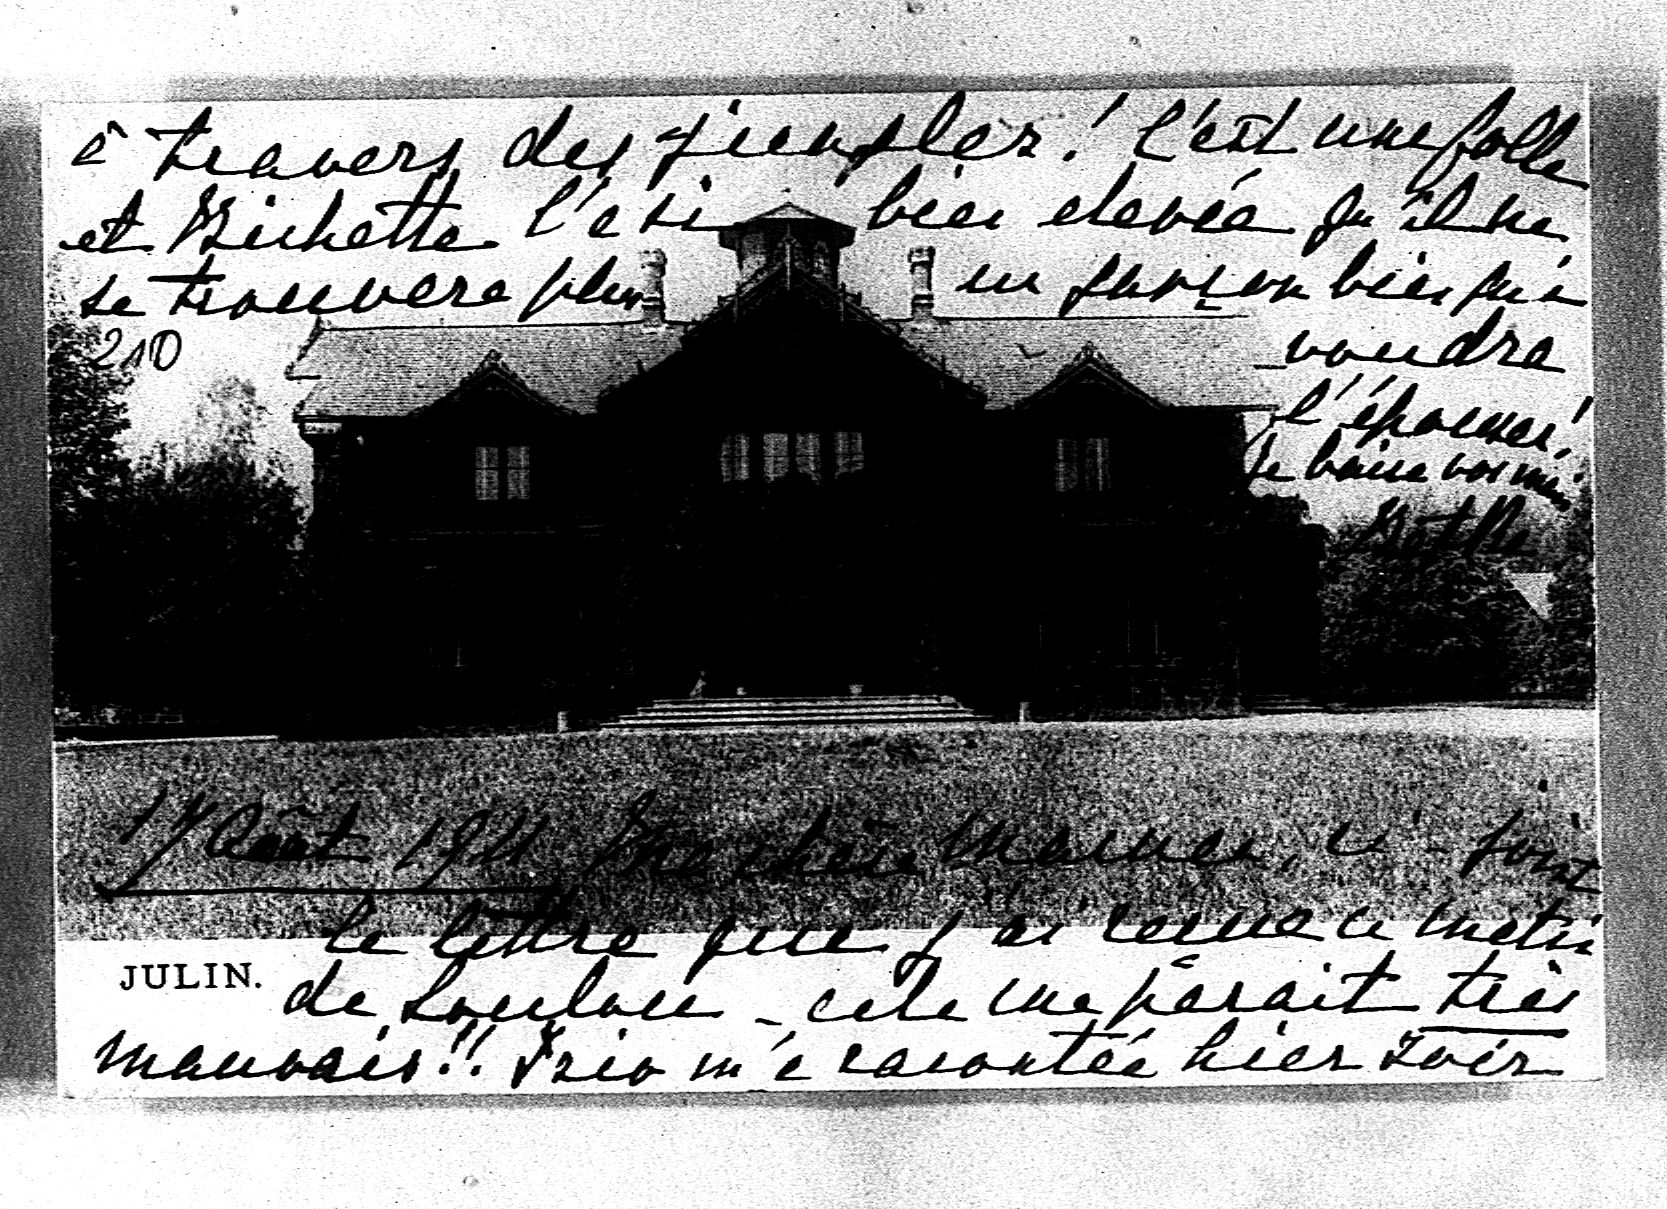 à travers des peuples! C'est une folle
et Bichette l'a si bien elevée qu'il ne
se trouvera plus un garçon bien qui
210
voudra
l'épouser!
Je baise vos mains
17 Août 1911 Ma chère Maman, ci-joint
la lettre que j'ai reçue ce matin
JULIN.
de Loulou - cela me parait très
mauvais!! m'a racontée hier soir